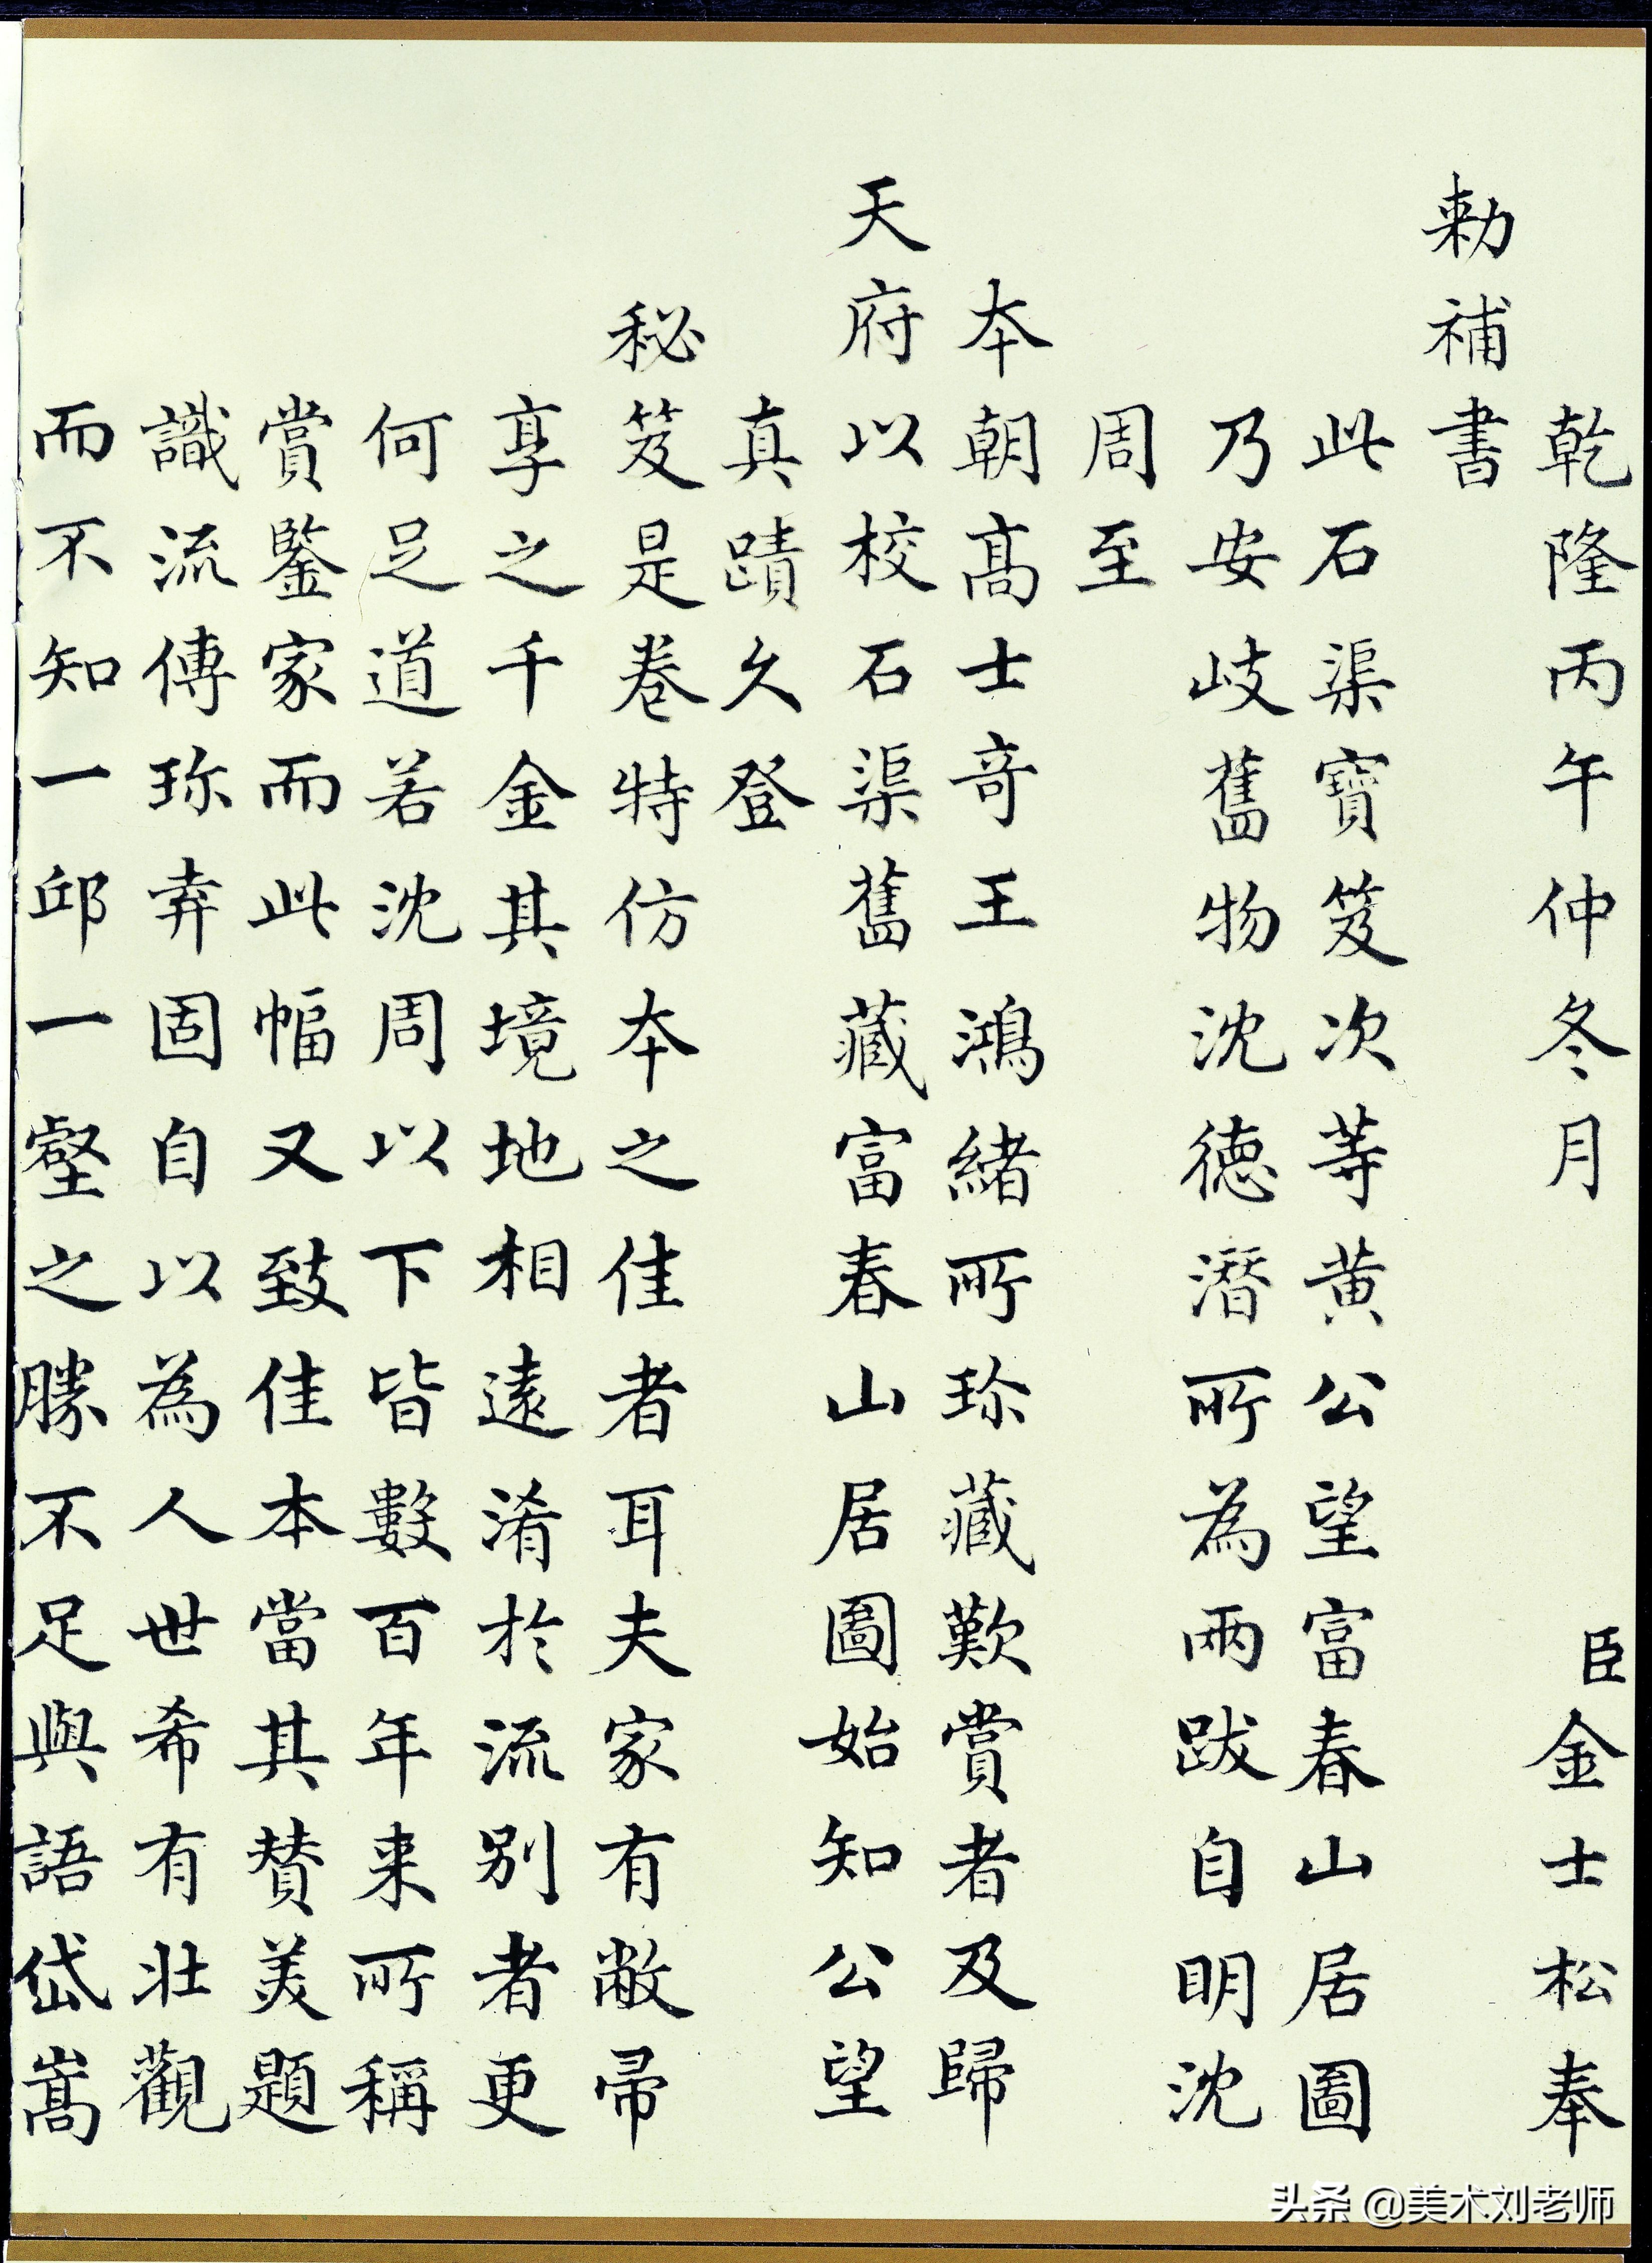 乾隆丙午仲冬月臣金士松奉
勅補書
此石渠寶笈次等黄公望富春山居圖
乃安岐舊物沈德潛所為兩跋自明沈
周至
本朝高士奇王鴻緒所珍藏歎賞者及歸
天府以校石渠舊藏富春山居圖始知公望
真蹟久登
秘笈是卷特仿本之佳者耳夫家有敝帚
享之千金其境地相遠淆於流别者更
何足道若沈周以下皆數百年来所稱
賞鑒家而此幅又致佳本當其賛美題
識流傳珎弆固自以為人世希有壯觀
而不知一邱一壑之勝不足與語岱嵩
头条 @美术刘老师